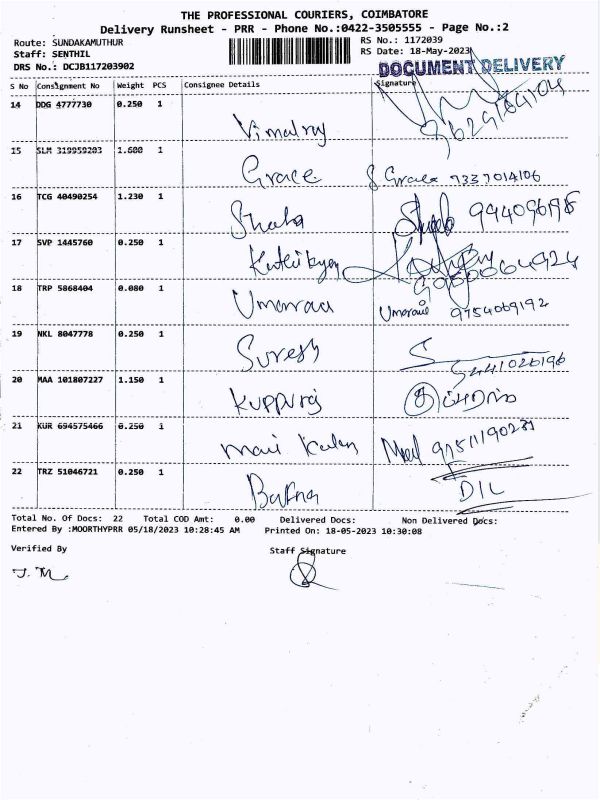 THE PROFESSIONAL COURIERS, COIMBATORE
Delivery Runsheet - PRR - Phone No.:0422-3505555 - Page No.:2
Route: SUNDAKAMUTHUR RS No.: 1172039
Staff: SENTHIL RS Date: 18-May-2023
DRS No.: DCJB117203902
DOCUMENT DELIVERY
S No Consignment No Weight PCS Consignee Details Signature
14 DDG 4777730 0.250 1
Vimalraj
15 SLM 319959203 1.600 1
Grace Grace 7337014106
16 TCG 40490254 1.230 1
17 SVP 1445760 0.250 1
18 TRP 5868404 0.080 1
9754069192
19 NKL 8047778 0.250 1
Suresh
20 MAA 101807227 1.150 1
Kuppuraj
21 KUR 694575466 0.250 1
22 TRZ 51046721 0.250 1
DIL
Total No. Of Docs: 22 Total COD Amt: 0.00 Delivered Docs: Non Delivered Docs:
Entered By :MOORTHYPRR 05/18/2023 10:28:45 AM Printed On: 18-05-2023 10:30:08
Verified By Staff Signature